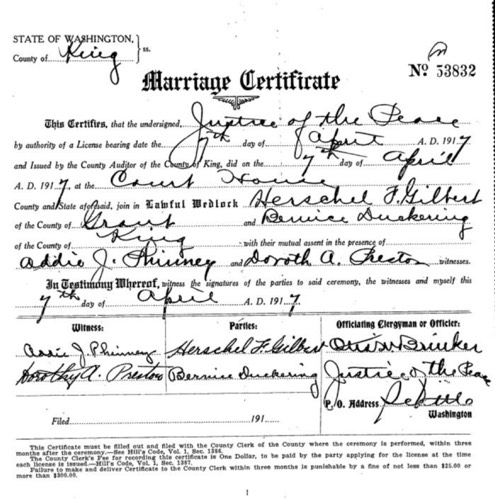 STATE OF WASHINGTON, } ss.
County of King
No. 53832
Marriage Certificate
This Certifies, that the undersigned, Justice of the Peace
by authority of a License bearing date the 7th day of April A. D. 1917
and Issued by the County Auditor of the County of King, did on the 7th day of April
A. D. 1917, at the Court House
County and State aforesaid, join in Lawful Wedlock Herschel F. Gilbert
of the County of Grant and Bernice Duckering
of the County of King with their mutual assent in the presence of
Addie J. Phinney and Doroth A. Preston witnesses.
In Testimony Whereof, witness the signatures of the parties to said ceremony, the witnesses and myself this
7th day of April A. D. 1917
Witness: Parties: Officiating Clergyman or Officer:
Addie J. Phinney Herschel F. Gilbert Otis W. Brinker
Dorothy A. Preston Bernice Duckering Justice of the Peace
P. O. Address Seattle
Washington
Filed 191
This Certificate must be filled out and filed with the County Clerk of the County where the ceremony is performed, within three
months after the ceremony.—See Hill's Code, Vol. 1, Sec. 1386.
The County Clerk's Fee for recording this certificate is One Dollar, to be paid by the party applying for the license at the time
each license is issued.—Hill's Code, Vol. 1, Sec. 1387.
Failure to make and deliver Certificate to the County Clerk within three months is punishable by a fine of not less than $25.00 or
more than $300.00.
1